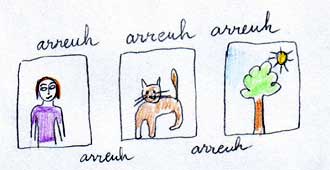 arreuh arreuh arreuh
arreuh arreuh